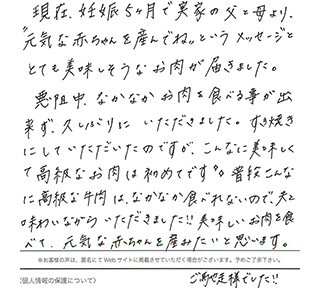 現在、妊娠5ヶ月で実家の父と母より、
"元気な赤ちゃんを産んでね"というメッセージと
とても美味しそうなお肉が届きました。
悪阻中、なかなかお肉を食べる事が出
来ず、久しぶりにいただきました。すき焼き
にしていただいたのですが、こんなに美味しく
て高級なお肉は初めてです。普段こんな
に高級な牛肉は、なかなか食べれないので、夫と
味わいながらいただきました!!美味しいお肉を食
べて、元気な赤ちゃんを産みたいと思います。
※お客様の声は、匿名にてWebサイトに掲載させていただく場合がございます。予めご了承下さい。
〈個人情報の保護について〉
ご馳走様でした!!